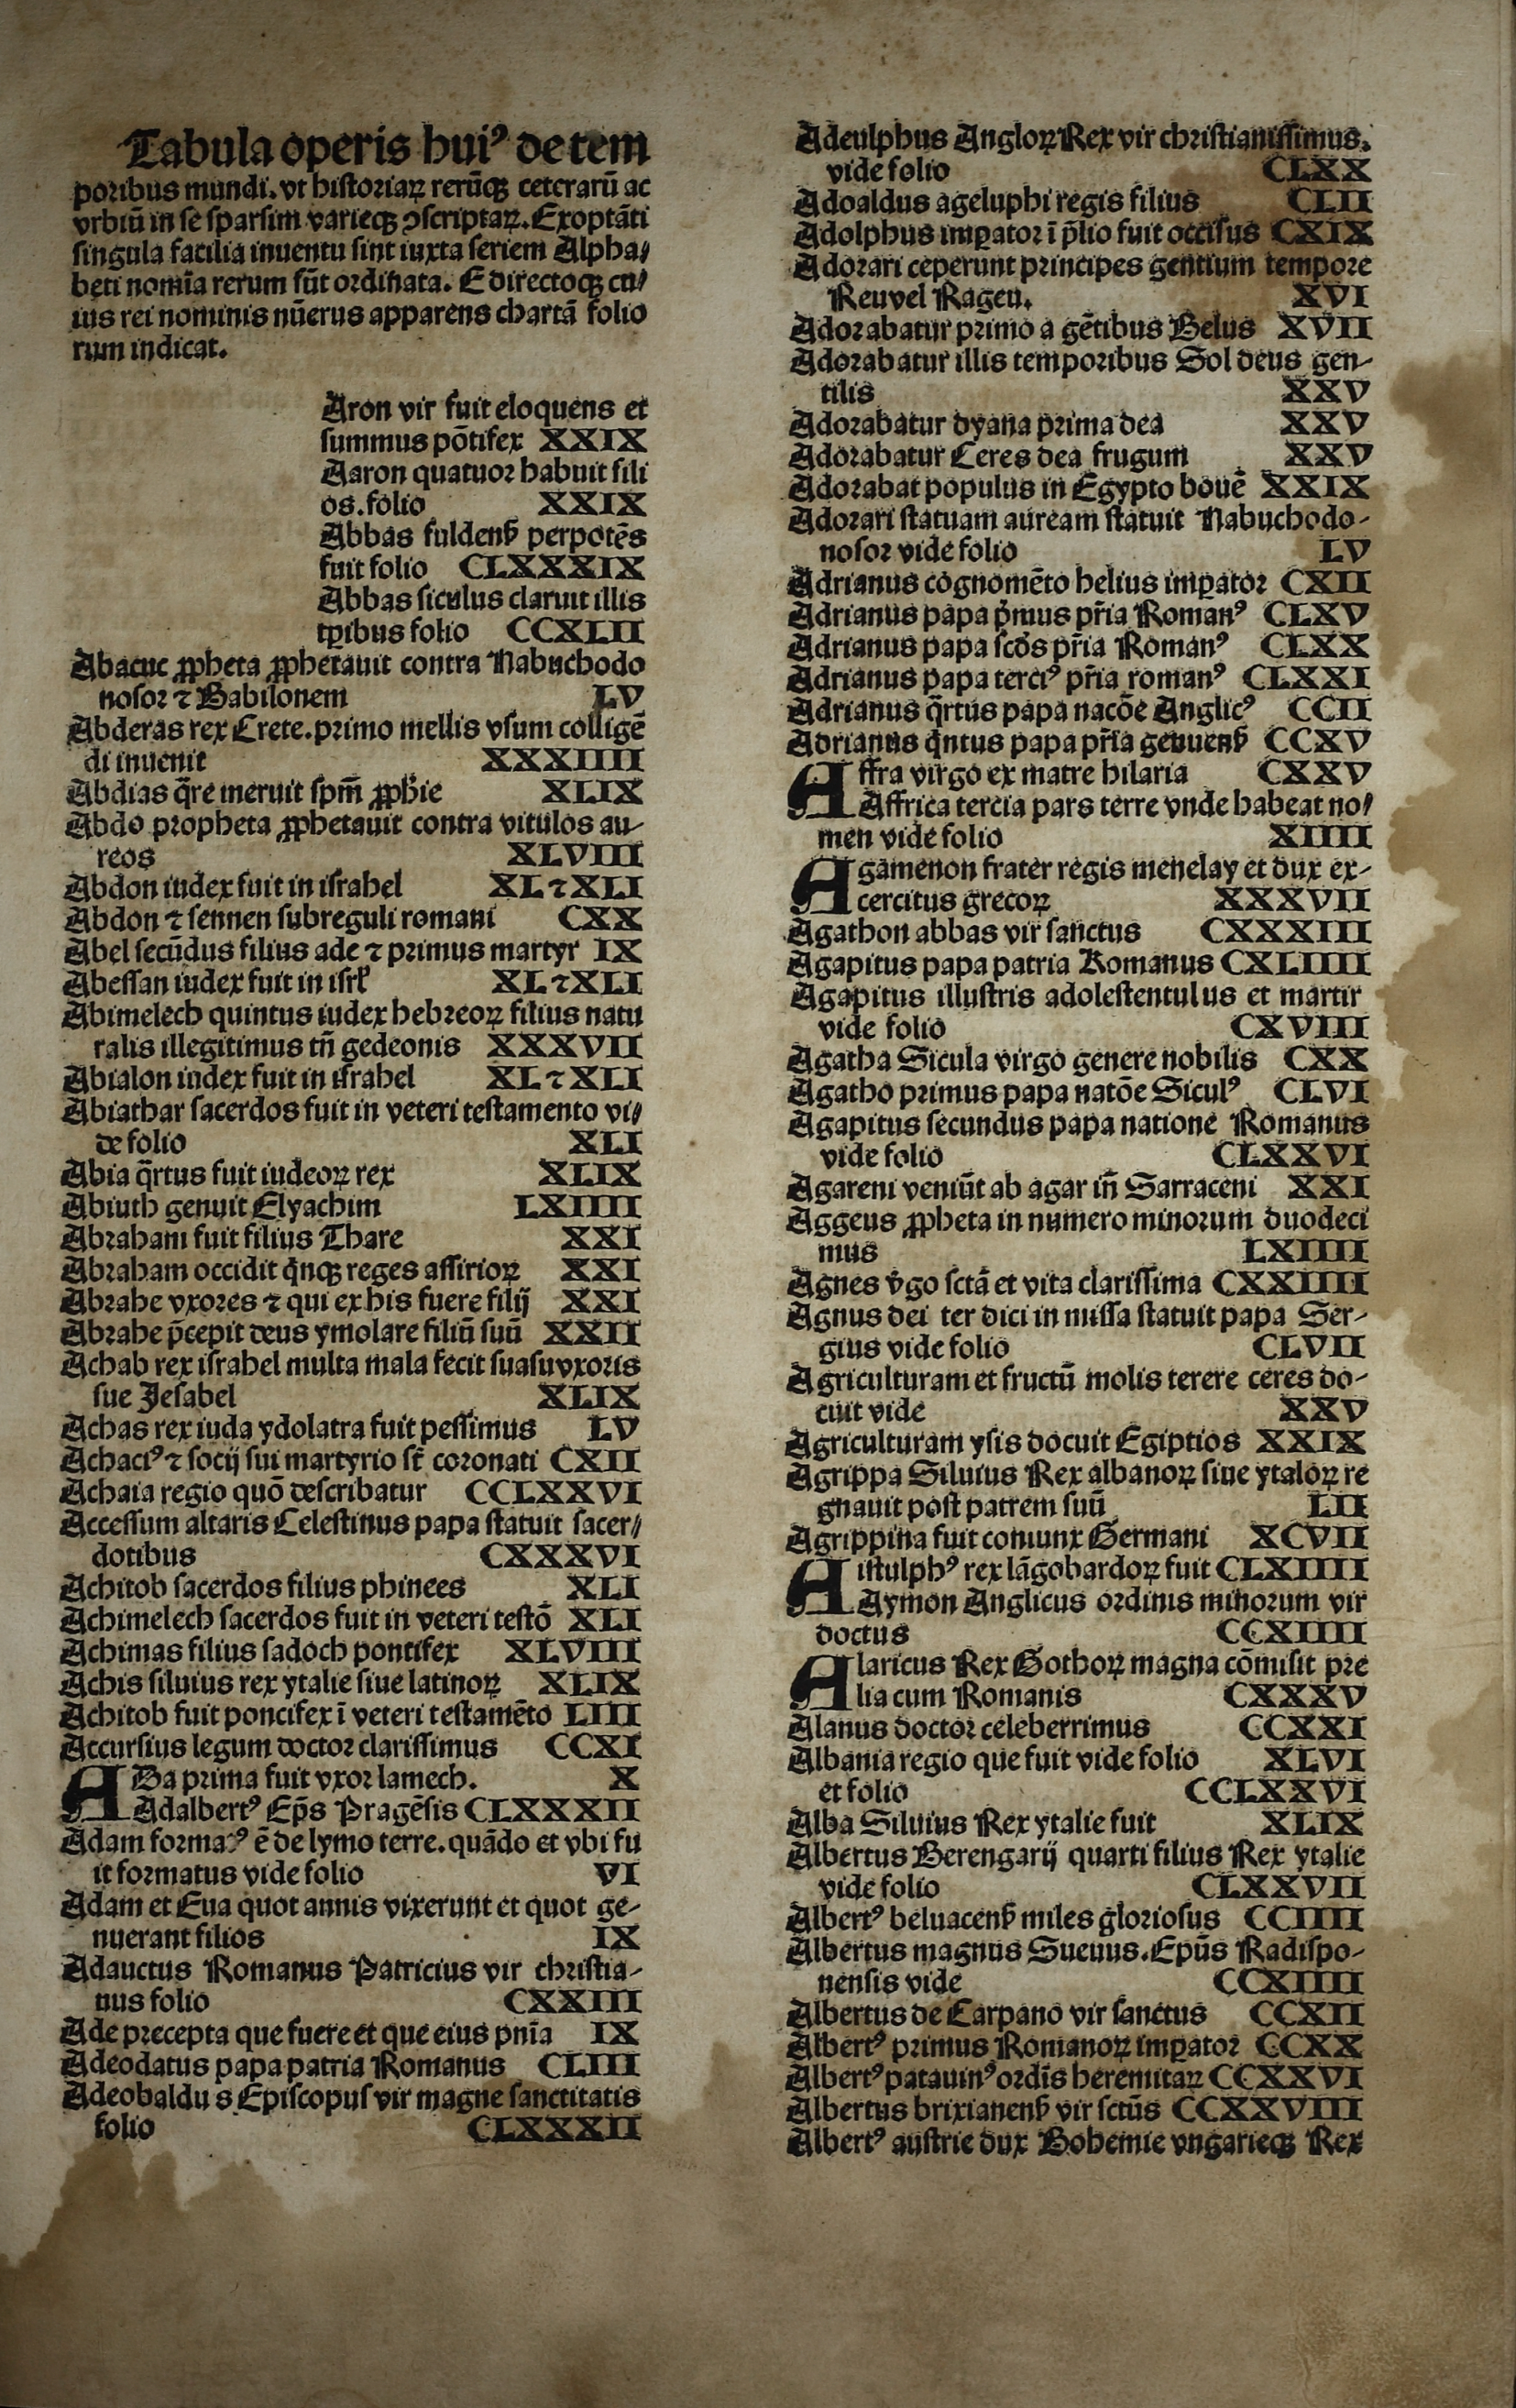 Tabula operis huiꝰ de tem
poribus mundi. vt historiaꝝ rerūqꝫ ceterarū ac
vrbiū in se sparsim varieqꝫ ↄscriptaꝝ. Exoptāti
singula facilia inuentu sint iuxta seriem Alpha/
beti nomīa rerum sūt ordinata. E directoqꝫ cu/
ius rei nominis nūerus apparens chartā folio
rum indicat.
Aron vir fuit eloquens et
summus pōtifex XXIX
Aaron quatuor habuit fili
os. folio XXIX
Abbas fuldenẜ perpotēs
fuit folio CLXXXIX
Abbas siculus claruit illis
tꝑibus folio CCXLII
Abacuc ꝓpheta ꝓphetauit contra Nabuchodo
nosor ⁊ Babilonem LV
Abderas rex Crete. primo mellis vsum colligē
di inuenit XXXIIII
Abdias q̄re meruit spm̄ ꝓphīe XLIX
Abdo propheta ꝓphetauit contra vitulos au-
reos XLVIII
Abdon iudex fuit in israhel XL ⁊ XLI
Abdon ⁊ sennen subreguli romani CXX
Abel secūdus filius ade ⁊ primus martyr IX
Abessan iudex fuit in isrl̄ XL ⁊ XLI
Abimelech quintus iudex hebreoꝝ filius natu
ralis illegitimus tn̄ gedeonis XXXVII
Abialon iudex fuit in israhel XL ⁊ XLI
Abiathar sacerdos fuit in veteri testamento vi/
de folio XLI
Abia q̄rtus fuit iudeoꝝ rex XLIX
Abiuth genuit Elyachim LXIIII
Abraham fuit filius Thare XXI
Abraham occidit qͥnqꝫ reges assirioꝝ XXI
Abrahe vxores ⁊ qui ex his fuere filij XXI
Abrahe p̄cepit deus ymolare filiū suū XXII
Achab rex israhel multa mala fecit suasu vxoris
sue Jesabel XLIX
Achas rex iuda ydolatra fuit pessimus LV
Achaciꝰ ⁊ socij sui martyrio st̄ coronati CXII
Achaia regio quō describatur CCLXXVI
Accessum altaris Celestinus papa statuit sacer/
dotibus CXXXVI
Achitob sacerdos filius phinees XLI
Achimelech sacerdos fuit in veteri testō XLI
Achimas filius sadoch pontifex XLVIII
Achis siluius rex ytalie siue latinoꝝ XLIX
Achitob fuit poncifex ī veteri testamēto LIII
Accursius legum doctor clarissimus CCXI
ADa prima fuit vxor lamech. X
Adalbertꝰ Ep̄s Pragēsis CLXXXII
Adam formaꝰ ē de lymo terre. quādo et vbi fu
it formatus vide folio VI
Adam et Eua quot annis vixerunt et quot ge-
nuerant filios IX
Adauctus Romanus Patricius vir christia-
nus folio CXXIII
Ade precepta que fuere et que eius pnīa IX
Adeodatus papa patria Romanus CLIII
Adeobaldus Episcopus vir magne sanctitatis
folio CLXXXII
Adeulphus Angloꝝ Rex vir christianissimus.
vide folio CLXX
Adoaldus ageluphi regis filius CLII
Adolphus imꝑator ī p̄lio fuit occisus CXIX
Adorari ceperunt principes gentium tempore
Reuvel Rageu. XVI
Adorabatur primo a gētibus Belus XVII
Adorabatur illis temporibus Sol deus gen-
tilis XXV
Adorabatur dyana prima dea XXV
Adorabatur Ceres dea frugum XXV
Adorabat populus in Egypto bouē XXIX
Adorari statuam auream statuit Nabuchodo-
nosor vide folio LV
Adrianus cognomēto helius imꝑator CXII
Adrianus papa pͥmus pr̄ia Romanꝰ CLXV
Adrianus papa scd̄s pr̄ia Romanꝰ CLXX
Adrianus papa terciꝰ pr̄ia romanꝰ CLXXI
Adrianus q̄rtus papa nacōe Anglicꝰ CCII
Adrianus qͥntus papa pr̄ia genuenẜ CCXV
Affra virgo ex matre hilaria CXXV
Affrica tercia pars terre vnde habeat no/
men vide folio XIIII
Agamenon frater regis menelay et dux ex-
cercitus grecoꝝ XXXVII
Agathon abbas vir sanctus CXXXIII
Agapitus papa patria Romanus CXLIIII
Agapitus illustris adolestentulus et martir
vide folio CXVIII
Agatha Sicula virgo genere nobilis CXX
Agatho primus papa natōe Siculꝰ CLVI
Agapitus secundus papa natione Romanus
vide folio CLXXVI
Agareni veniūt ab agar in̄ Sarraceni XXI
Aggeus ꝓpheta in numero minorum duodeci
mus LXIIII
Agnes vͥgo sctā et vita clarissima CXXIIII
Agnus dei ter dici in missa statuit papa Ser-
gius vide folio CLVII
Agriculturam et fructū molis terere ceres do-
cuit vide XXV
Agriculturam ysis docuit Egiptios XXIX
Agrippa Siluius Rex albanoꝝ siue ytaloꝝ re
gnauit post patrem suū LII
Agrippina fuit coniunx Germani XCVII
Aistulphꝰ rex lāgobardoꝝ fuit CLXIIII
Aymon Anglicus ordinis minorum vir
doctus CCXIIII
Alaricus Rex Gothoꝝ magna cōmisit pre
lia cum Romanis CXXXV
Alanus doctor celeberrimus CCXXI
Albania regio que fuit vide folio XLVI
et folio CCLXXVI
Alba Siluius Rex ytalie fuit XLIX
Albertus Berengarij quarti filius Rex ytalie
vide folio CLXXVII
Albertꝰ beluacenẜ miles gloriosus CCIIII
Albertus magnus Sueuus. Epūs Radispo-
nensis vide CCXIIII
Albertus de Carpano vir sanctus CCXII
Albertꝰ primus Romanoꝝ imꝑator CCXX
Albertꝰ patauinꝰ ordīs heremitaꝝ CCXXVI
Albertus brixianenẜ vir sctūs CCXXVIII
Albertꝰ austrie dux Bohemie vngarieqꝫ Rex